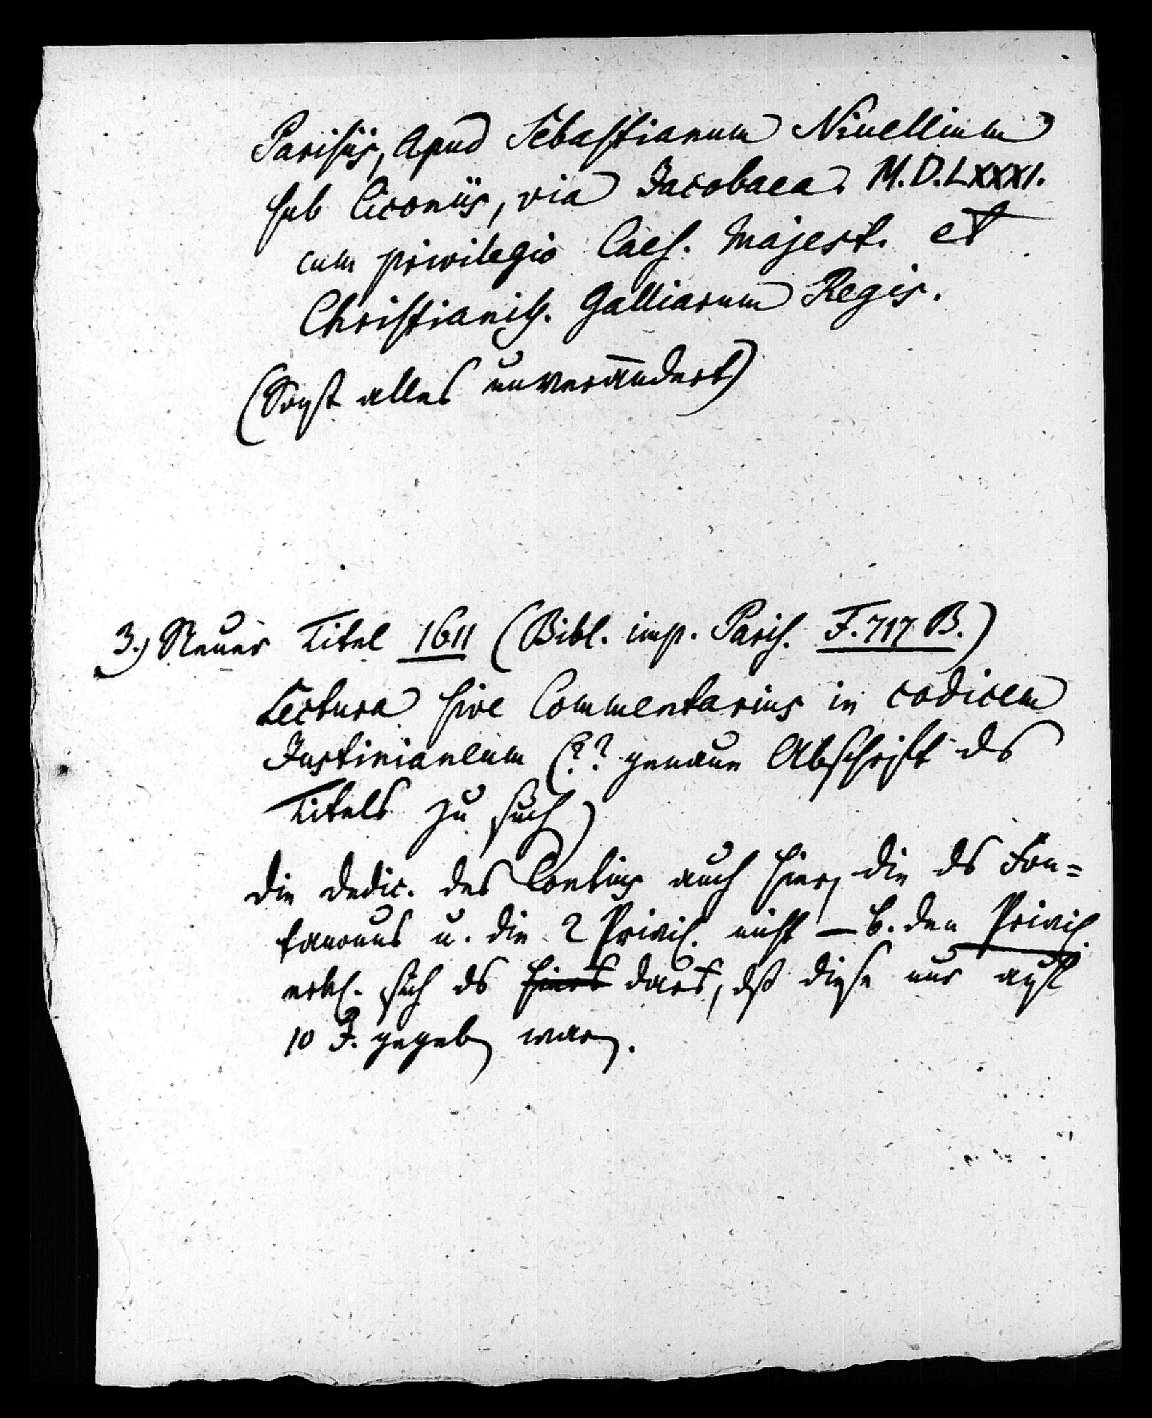 Parisiis, Apud Sebastianum Nivellium
sub Ciconiis, via Jacobaea. M.D.LXXXI.
cum privilegio Caes. Majest. et
Christianiss. Galliarum Regis.
(Sonst alles unverändert)
3.) Neuer Titel 1611 (Bibl. imp. Paris. F. 717 B.)
Lectura sive Commentarius in codicem
Justinianeum (?? genaue Abschrift des
Titels zu such)
Die Dedic. des Contius auch hier, die des Fon=
tanonus u. die 2 Privil. nicht – b. den Privil.
erkl. sich ds dart, dß diese nur auf
10 J. gegeben waren.